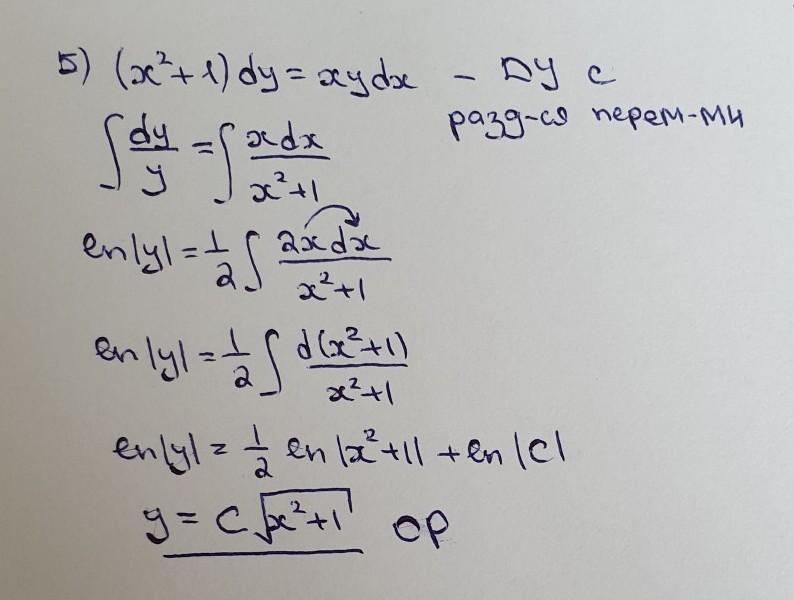 5) (x²+1)dy = xydx – ДУ с
разд-ся перем-ми
∫ dy/y = ∫ xdx/x²+1
ln|y| = 1/2 ∫ 2xdx/x²+1
ln|y| = 1/2 ∫ d(x²+1)/x²+1
ln|y| = 1/2 ln|x²+1| + ln|C|
y = C√x²+1 ОР